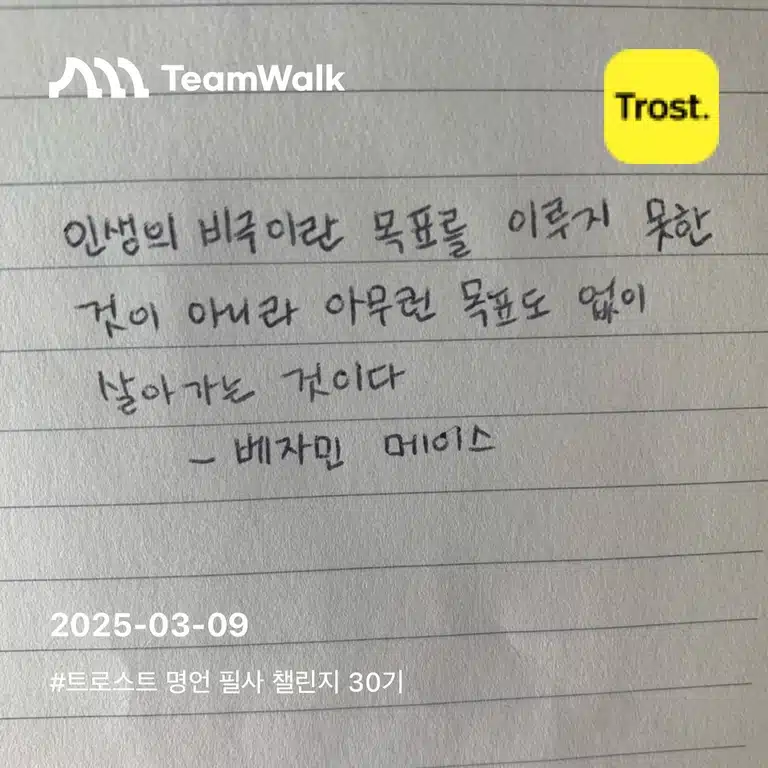 TeamWalk
Trost.
인생의 비극이란 목표를 이루지 못한
것이 아니라 아무런 목표도 없이
살아가는 것이다
- 베자민 메이스
2025-03-09
#트로스트 명언 필사 챌린지 30기